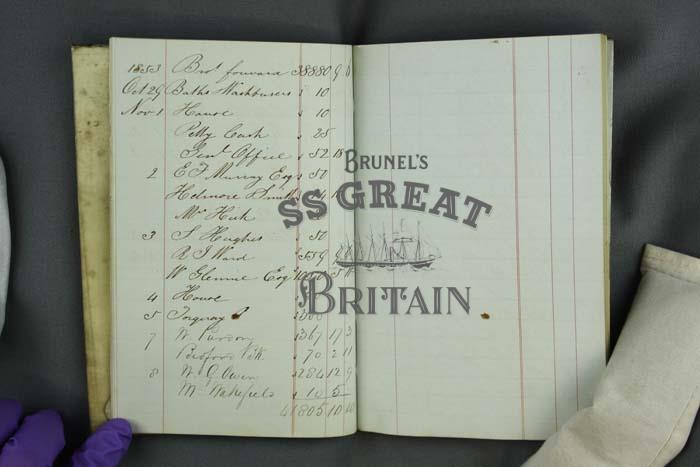 1853 Brot forward 38880 9
Oct 29 Baths Washhouses " 10
Nov 1 Howse " 10
Petty Cash " 25
Genl Office " 52 18
2 E F Murray Esq " 50
Helmore Smith
Mr
3 S Hughes " 50
R J Ward 559
W Glennie Esq
4 Howse
5 Torquay
7 W 367 17 3
Bedford 70 2 11
8 W G Owen 284 12 9
Mr Wakefield " 10 5
41805 10
BRUNEL'S
SS GREAT
BRITAIN